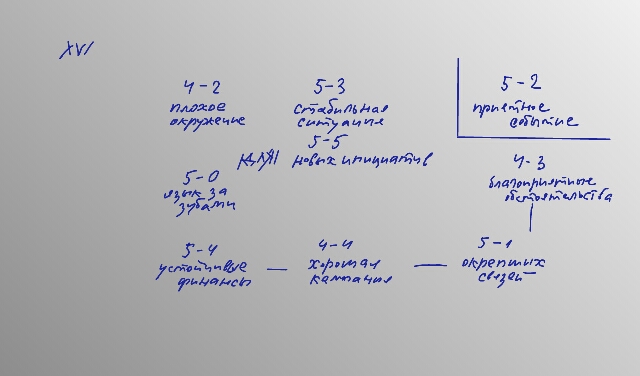 XVI
4-2
плохое
окружение
5-3
стабильная
ситуация
5-2
приятное
событие
5-5
для новых инициатив
5-0
язык за
зубами
4-3
благоприятные
обстоятельства
5-4
устойчивые
финансы
4-4
хорошая
кампания
5-1
окрепших
связей